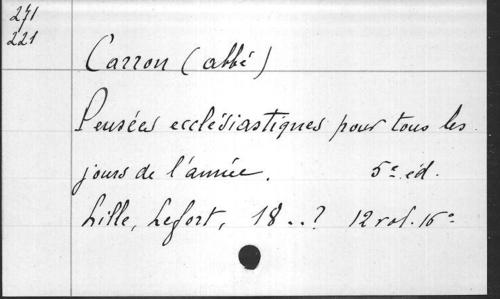 271
221
Carron (abbé)
Pensées ecclésiastiques pour tous les
jours de l'année. 5e éd.
Lille, Lefort, 18..? 12 vol. 16°